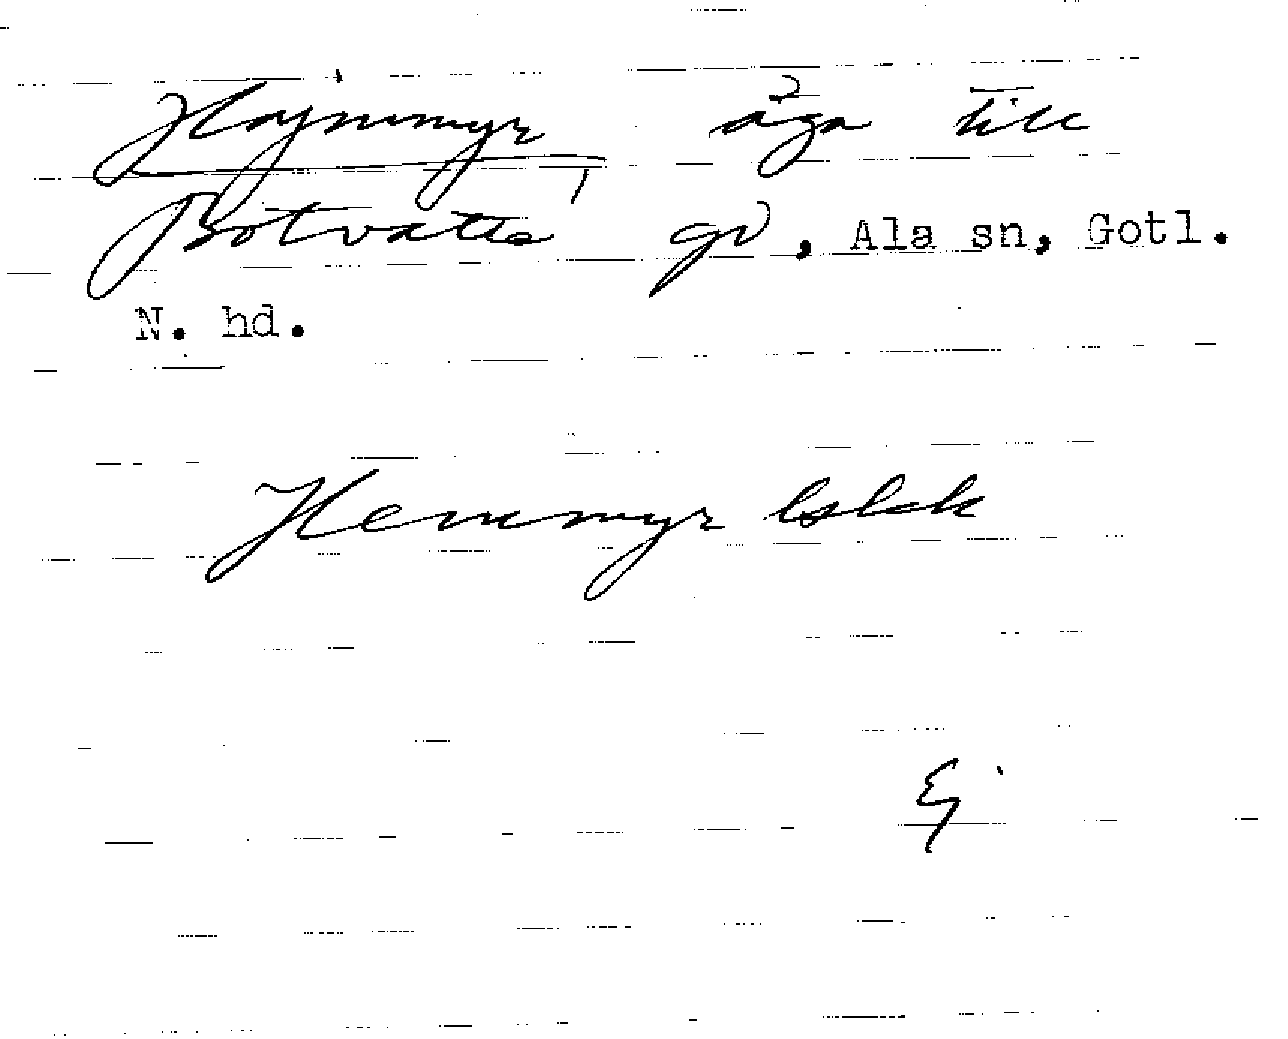 Hajnmyr äga till
Botvatte gd, Ala sn, Gotl.
N. hd.
Hemmyr lslek
Ej